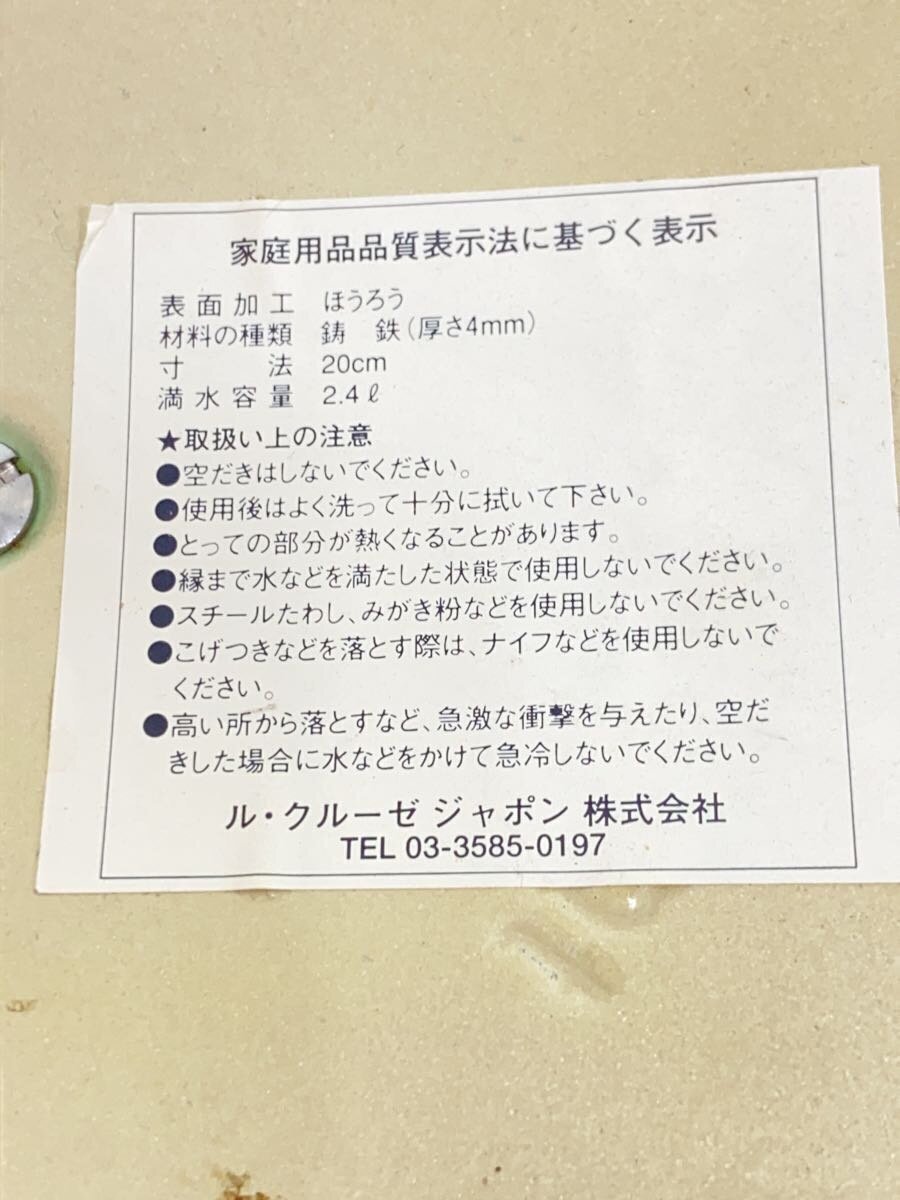 家庭用品品質表示法に基づく表示
表面加工 ほうろう
材料の種類 鋳 鉄(厚さ4mm)
寸 法 20cm
満水容量 2.4ℓ
★取扱い上の注意
●空だきはしないでください。
●使用後はよく洗って十分に拭いて下さい。
●とっての部分が熱くなることがあります。
●縁まで水などを満たした状態で使用しないでください。
●スチールたわし、みがき粉などを使用しないでください。
●こげつきなどを落とす際は、ナイフなどを使用しないで
ください。
●高い所から落とすなど、急激な衝撃を与えたり、空だ
きした場合に水などをかけて急冷しないでください。
ル・クルーゼ ジャポン 株式会社
TEL 03-3585-0197